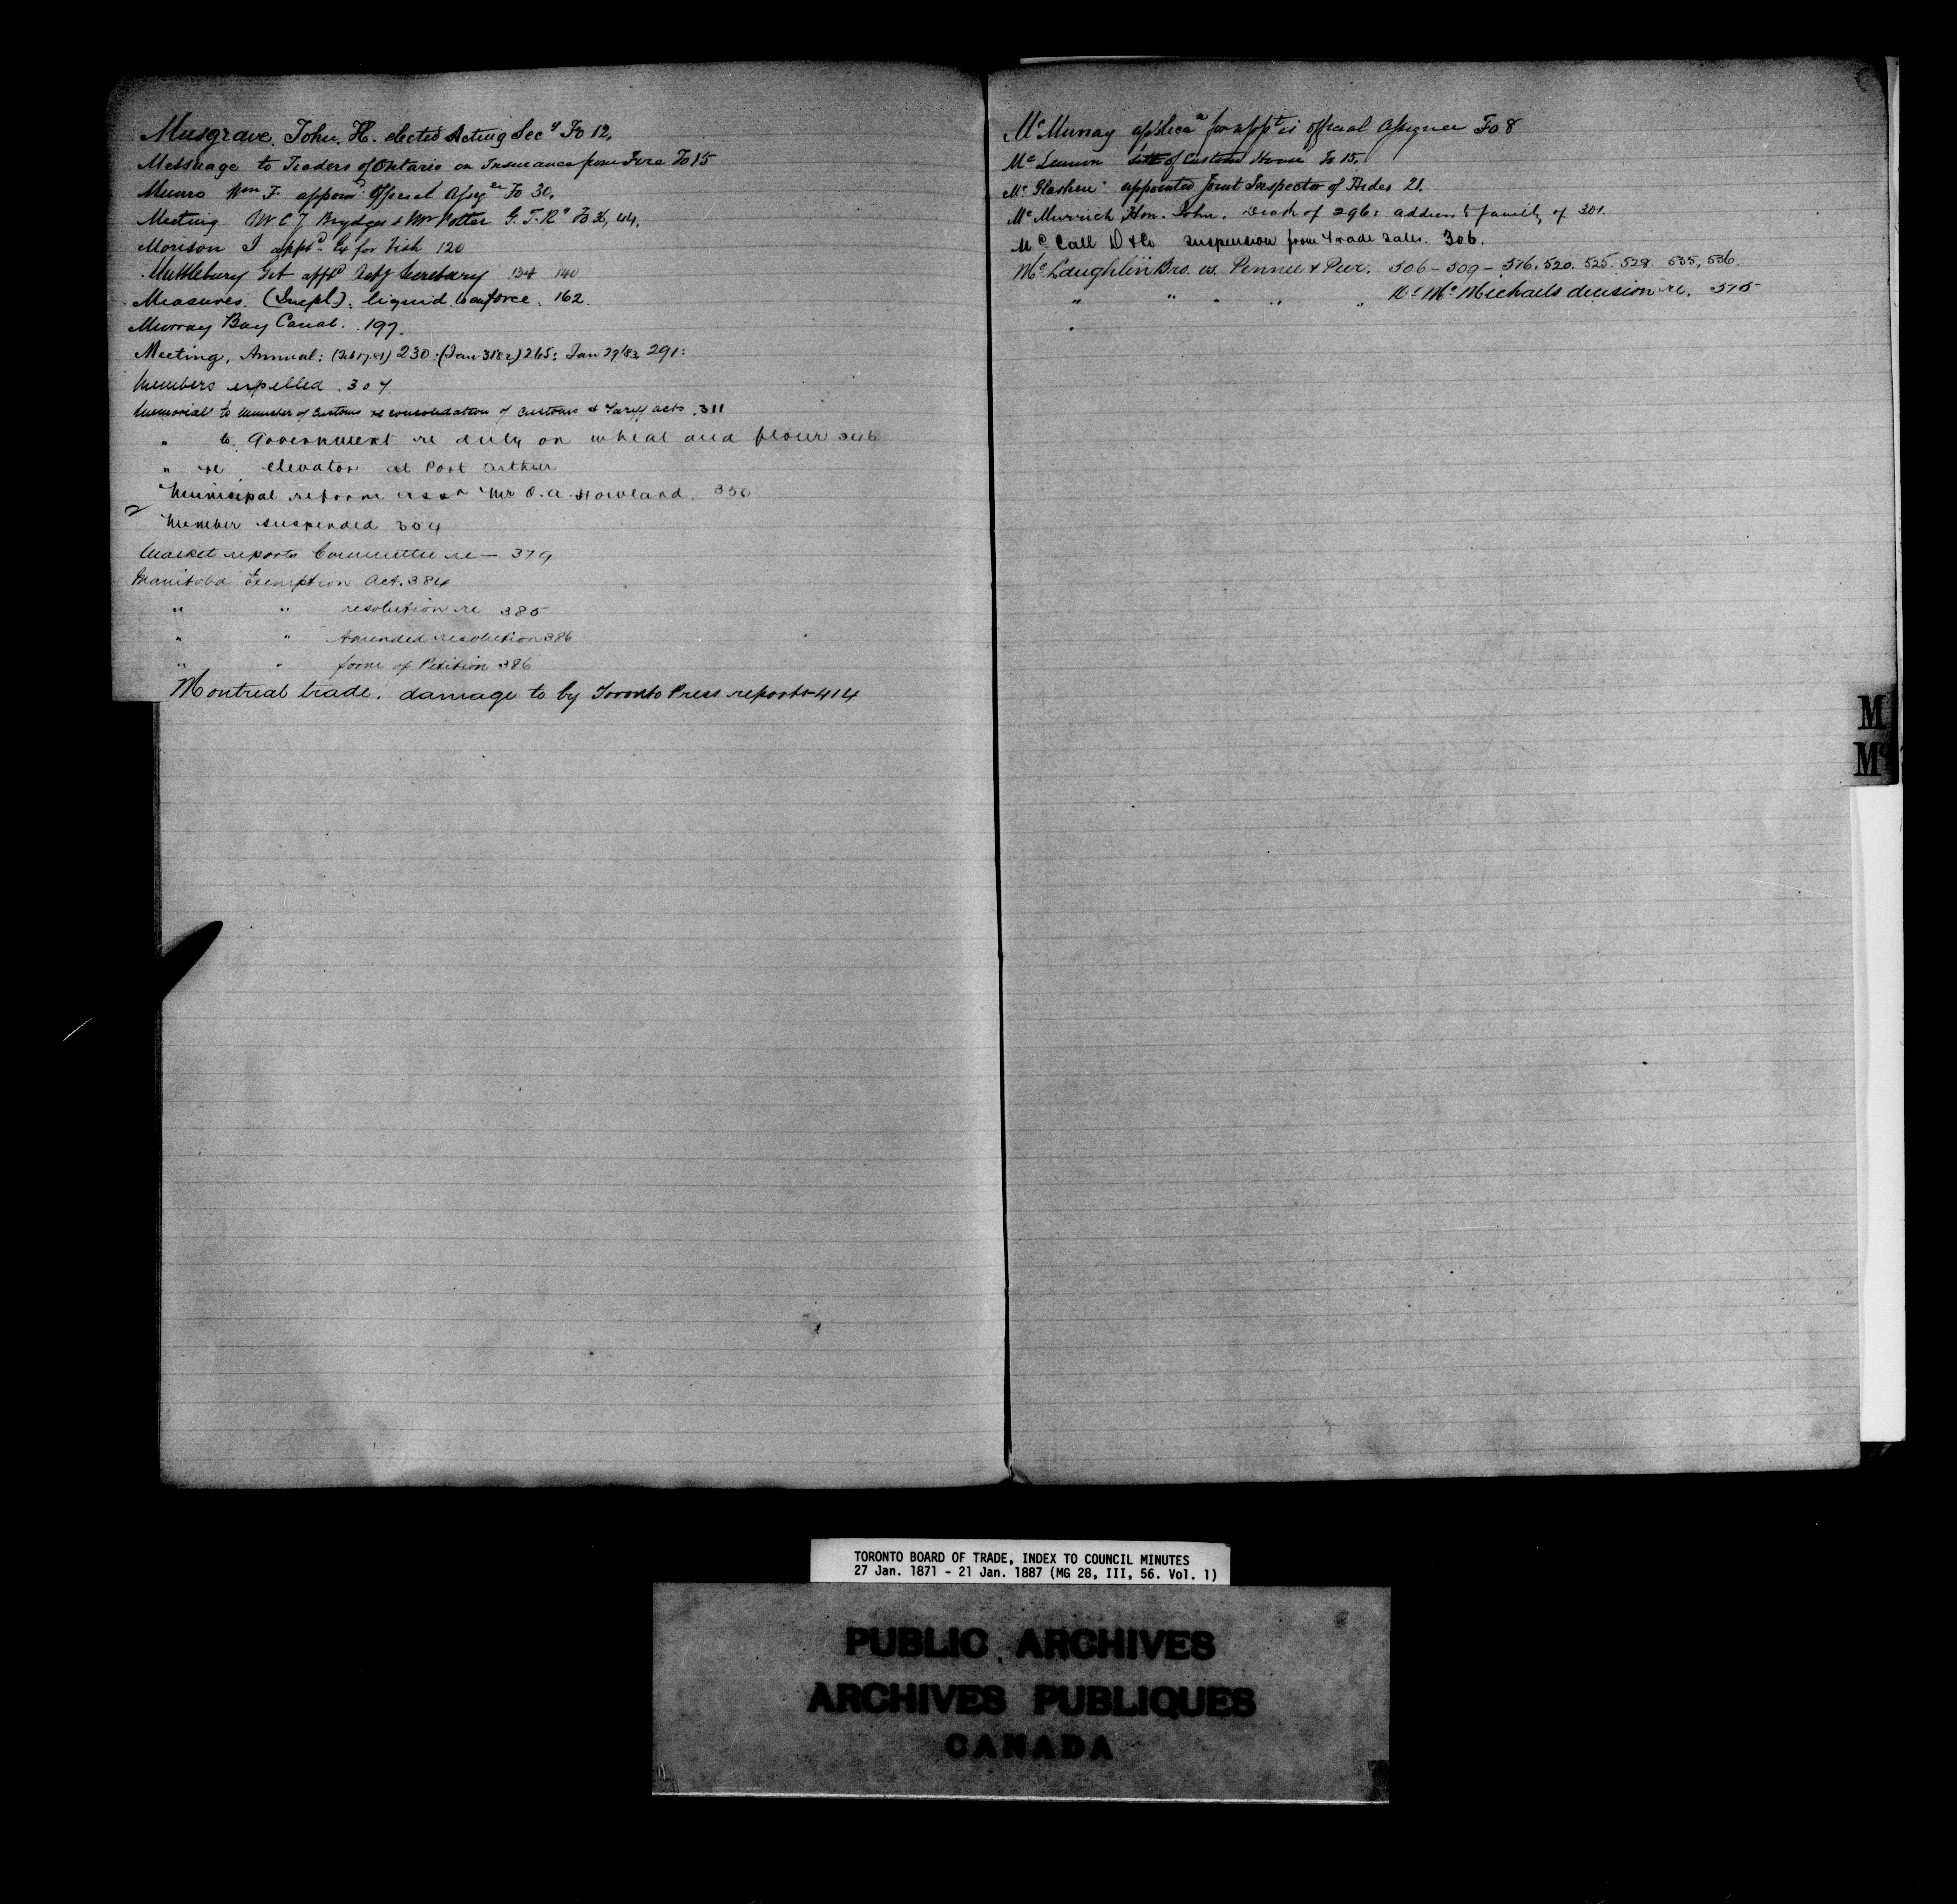 Musgrave, John. H. elected Acting Secy Fo 12,
Message to Traders of Ontario on Insurance from Fire Fo 15
Munro Wm F. appoind. Official Assignee Fo 30,
Meeting W C J Brydges & Mr Potter G. T. R. Fo 44,
Morison J appt for Fish 120
Muttlebury Geo. apptd Actg Secretary 134 140
Measures. (Impl). liquid to enforce. 162.
Murray Bay Canal. 197.
Meeting, Annual: (Feb 17/81) 230: (Jan 31/82) 265: Jan 29/83 291:
Members expelled. 307
Memorial to Minister of Customs re consolidation of Customs & Tariff acts. 311
" to Government re duty on wheat and flour 346
" re elevator at Port Arthur
Municipal reform assn Mr O. A. Howland. 350
Member suspended 304
Market reports Committee re — 379
Manitoba Exemption Act. 384
" " resolution re 385
" " Amended resolution 386
" " form of Petition 386
Montreal trade. damage to by Toronto Press reports 414
McMurray applican for appt as official Assignee Fo 8
McLennon of Custom House Fo 15.
McGlashen appointed Joint Inspector of Hides 21.
McMurrich, Hon. John. Death of 296: address to family of 301.
McCall D & Co suspension from trade sales. 306.
McLaughlin Bros. vs. Pennee & Peer. 506 - 509 - 516. 520. 525. 528 535, 536
" " " " " Dr McMichaels decision re. 575
M
Mc
TORONTO BOARD OF TRADE, INDEX TO COUNCIL MINUTES
27 Jan. 1871 - 21 Jan. 1887 (MG 28, III, 56. Vol. 1)
PUBLIC ARCHIVES
ARCHIVES PUBLIQUES
CANADA